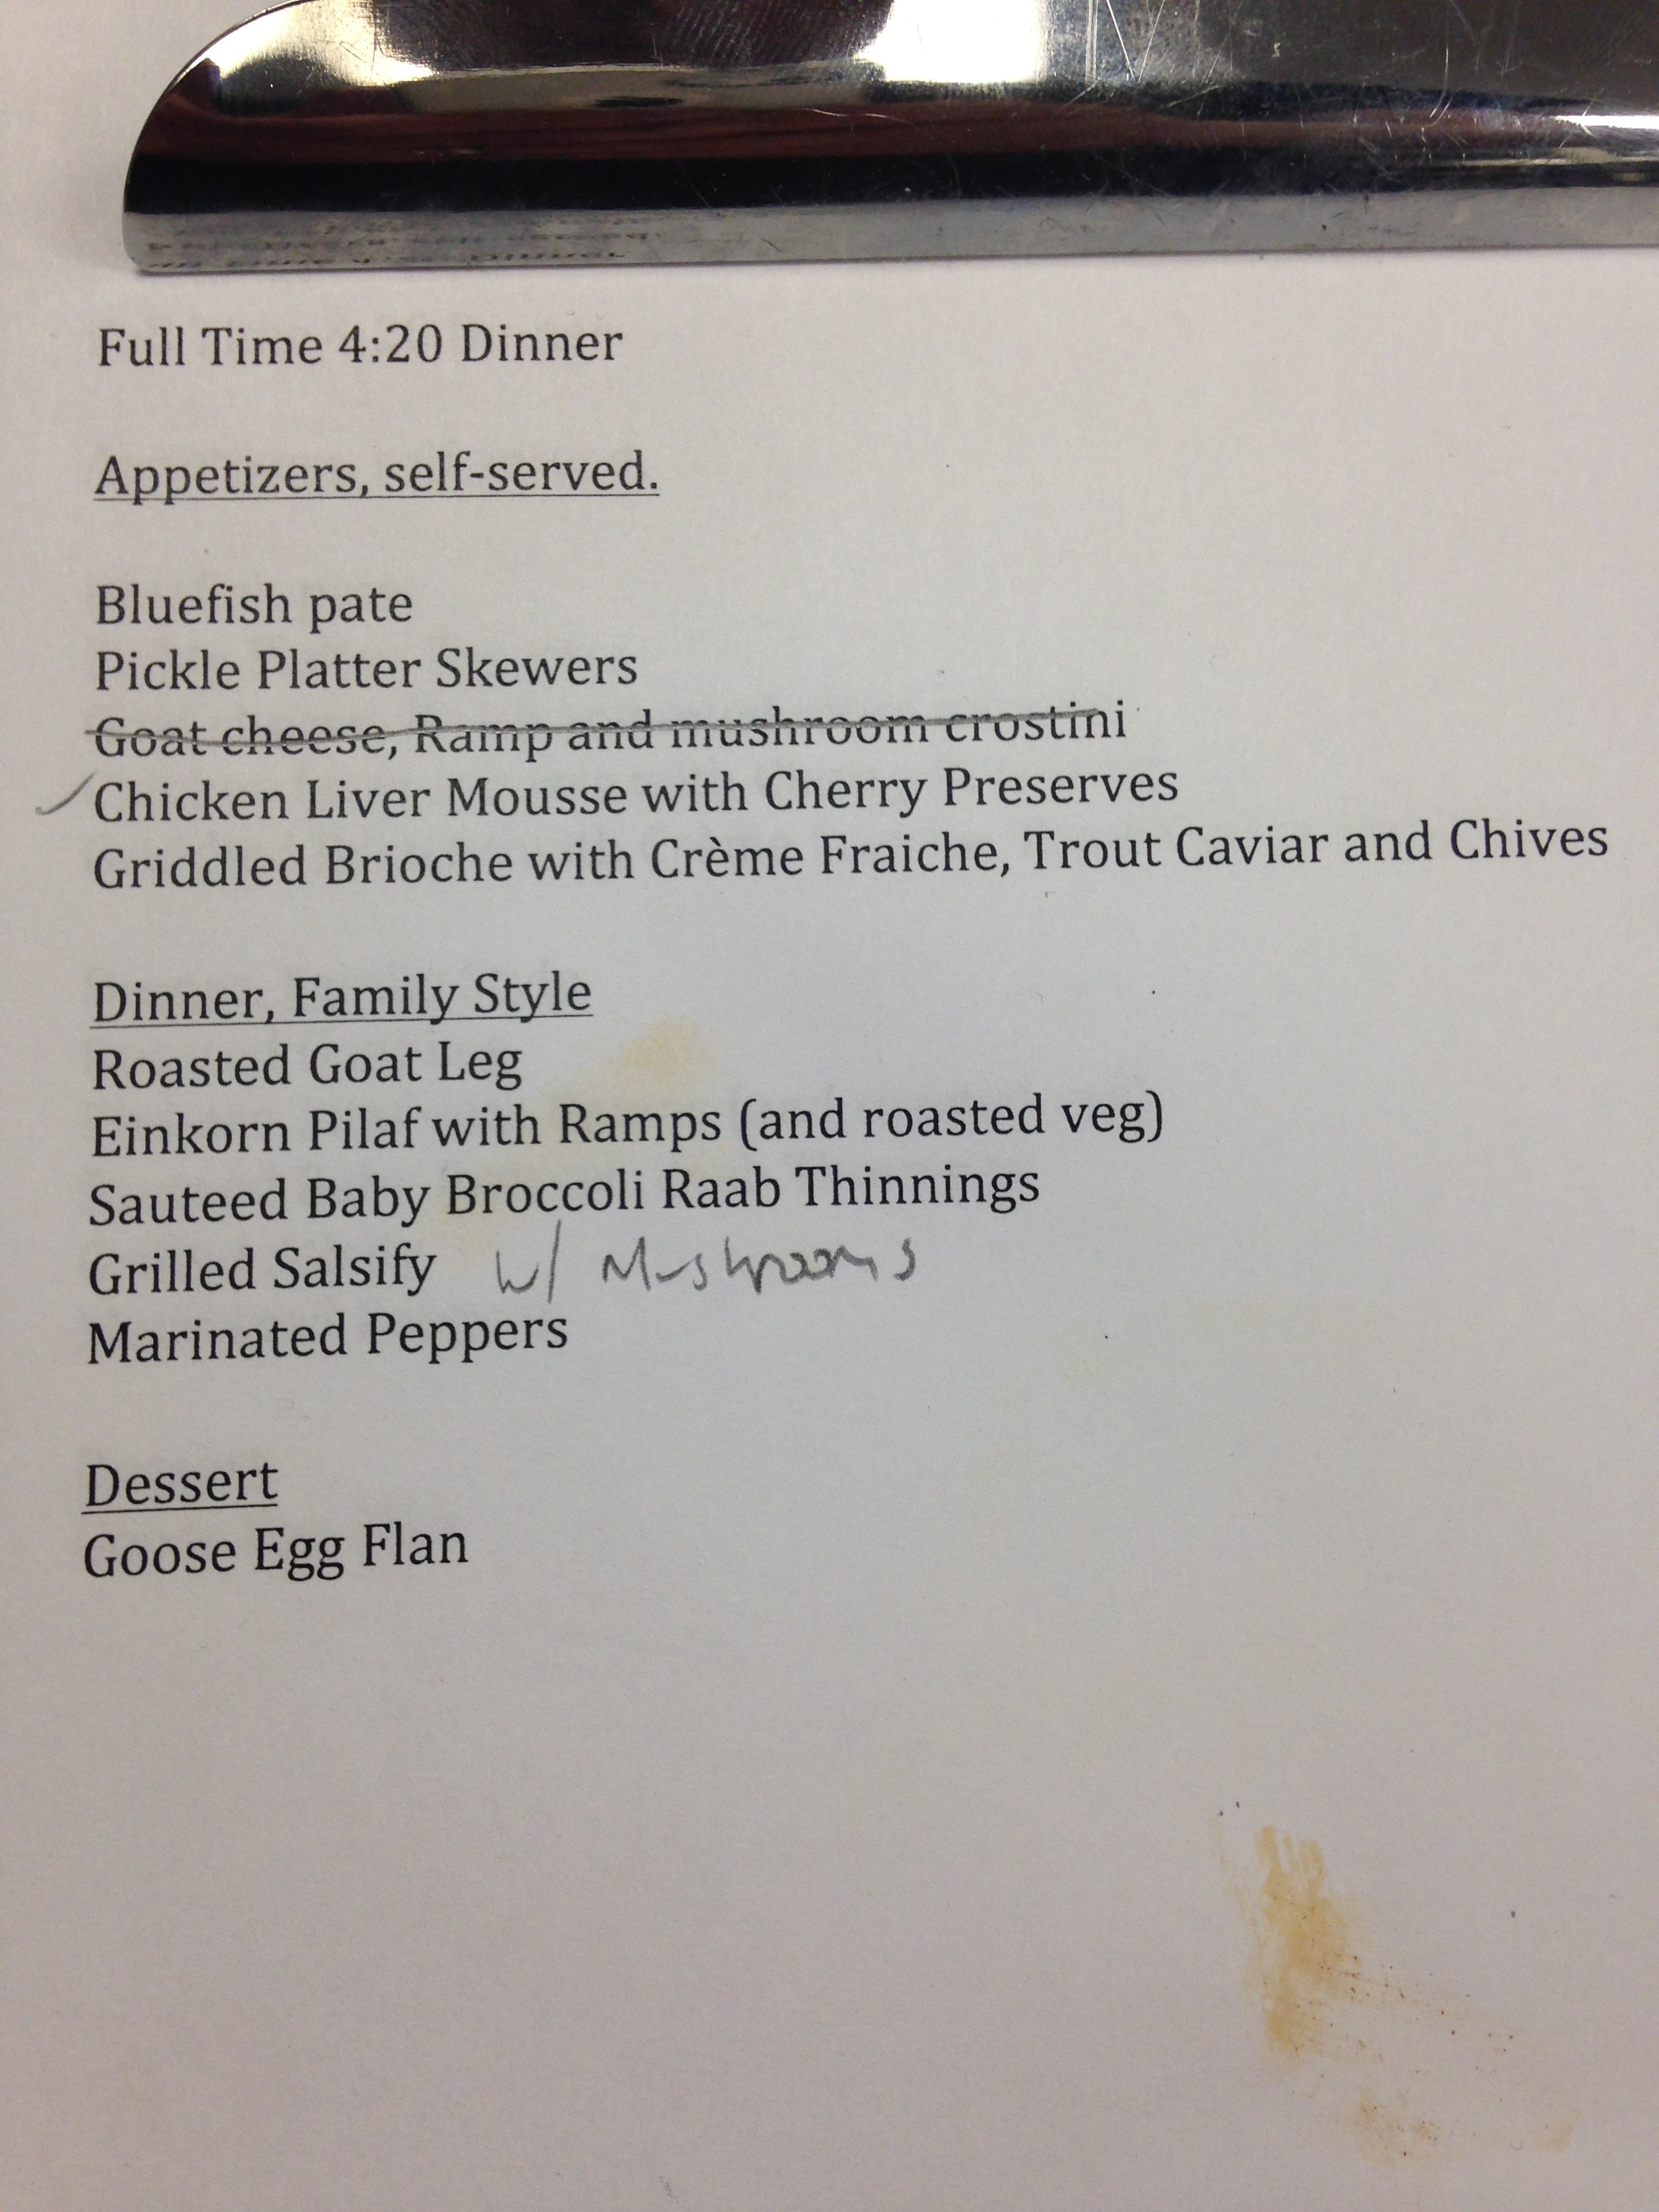 Full Time 4:20 Dinner
Appetizers, self-served.
Bluefish pate
Pickle Platter Skewers
Goat cheese, Ramp and mushroom crostini
Chicken Liver Mousse with Cherry Preserves
Griddled Brioche with Crème Fraiche, Trout Caviar and Chives
Dinner, Family Style
Roasted Goat Leg
Einkorn Pilaf with Ramps (and roasted veg)
Sauteed Baby Broccoli Raab Thinnings
Grilled Salsify w/ Mushrooms
Marinated Peppers
Dessert
Goose Egg Flan